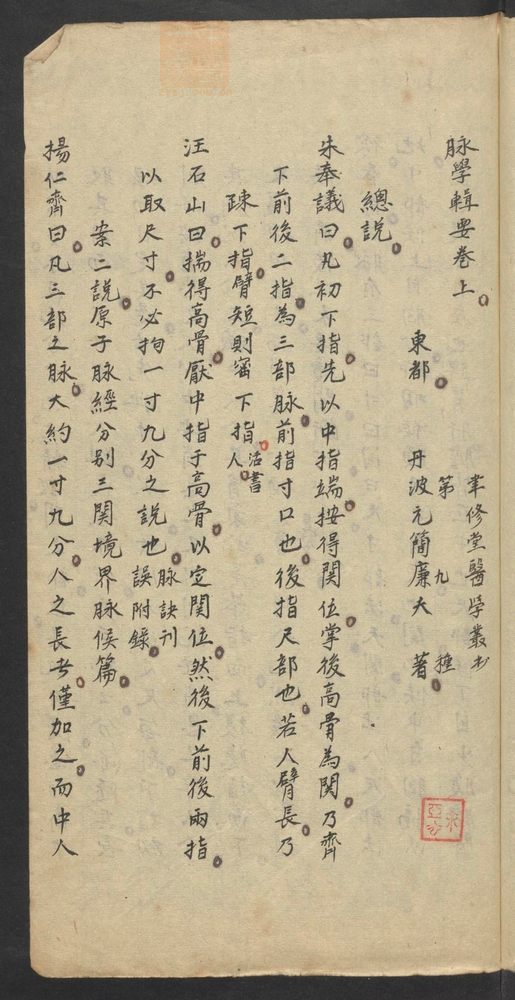 脉學輯要卷上
聿修堂醫學叢书
第九種
東都 丹波元簡廉夫 著
總説
朱奉議曰凡初下指先以中指端按得関位掌後高骨為関乃齊
下前後二指為三部脉前指寸口也後指尺部也若人臂長乃
疎下指臂短則宻下指活人書
汪石山曰揣得高骨厭中指于高骨以定関位然後下前後兩指
以取尺寸不必拘一寸九分之説也脉訣刊誤附錄
案二説原于脉經分别三関境界脉候篇
楊仁齊曰凡三部之脉大約一寸九分人之長者僅加之而中人